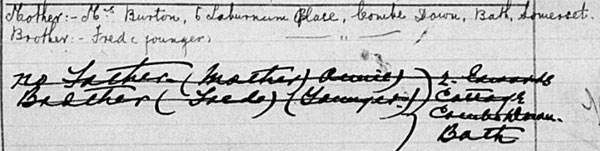 Mother:- Mrs Burton, 5 Laburnum Place, Combe Down, Bath, Somerset.
Brother:- Fred (younger) — " — " —
no Father (Mother) Annie) 2. Edwards
Brother (Frede) (Younger) Cottage
Combe Down.
Bath